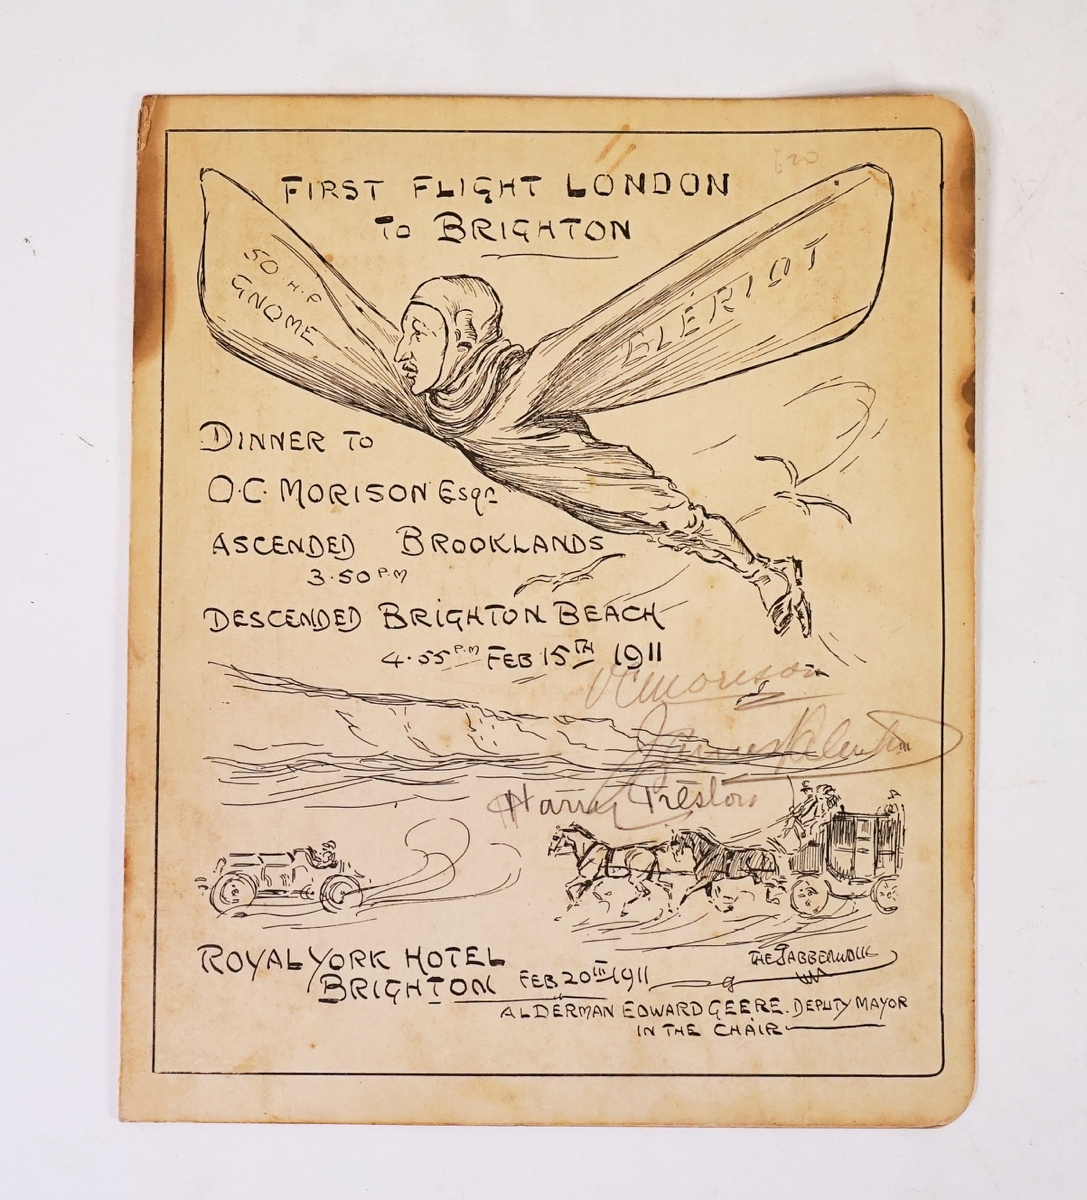 FIRST FLIGHT LONDON
TO BRIGHTON
50 H.P
GNOME
BLÉRIOT
DINNER TO
O.C. MORISON Esqr
ASCENDED BROOKLANDS
3.50 P.M
DESCENDED BRIGHTON BEACH
4.55 P.M FEB 15TH 1911
OC Morison
James Valentine
Harry Preston
ROYAL YORK HOTEL
BRIGHTON FEB 20TH 1911
THE JABBERWOCK
ALDERMAN EDWARD GEERE. DEPUTY MAYOR
IN THE CHAIR